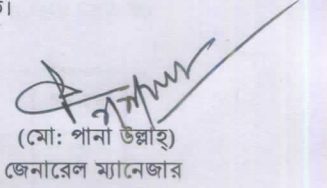 ।
(মো: পানা উল্লাহ্)
জেনারেল ম্যানেজার